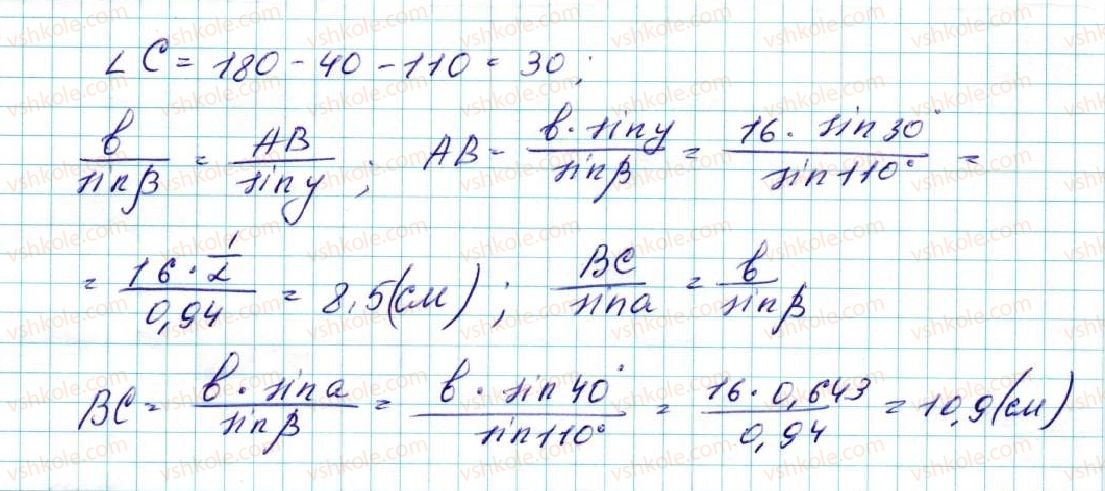 ∠C = 180 - 40 - 110 = 30;
b/sinβ = AB/sinγ; AB = b·sinγ/sinβ = 16·sin30°/sin110° =
= 16·1/2/0,94 = 8,5(см); BC/sinα = b/sinβ
BC = b·sinα/sinβ = b·sin40°/sin110° = 16·0,643/0,94 = 10,9(см)
vshkole.com